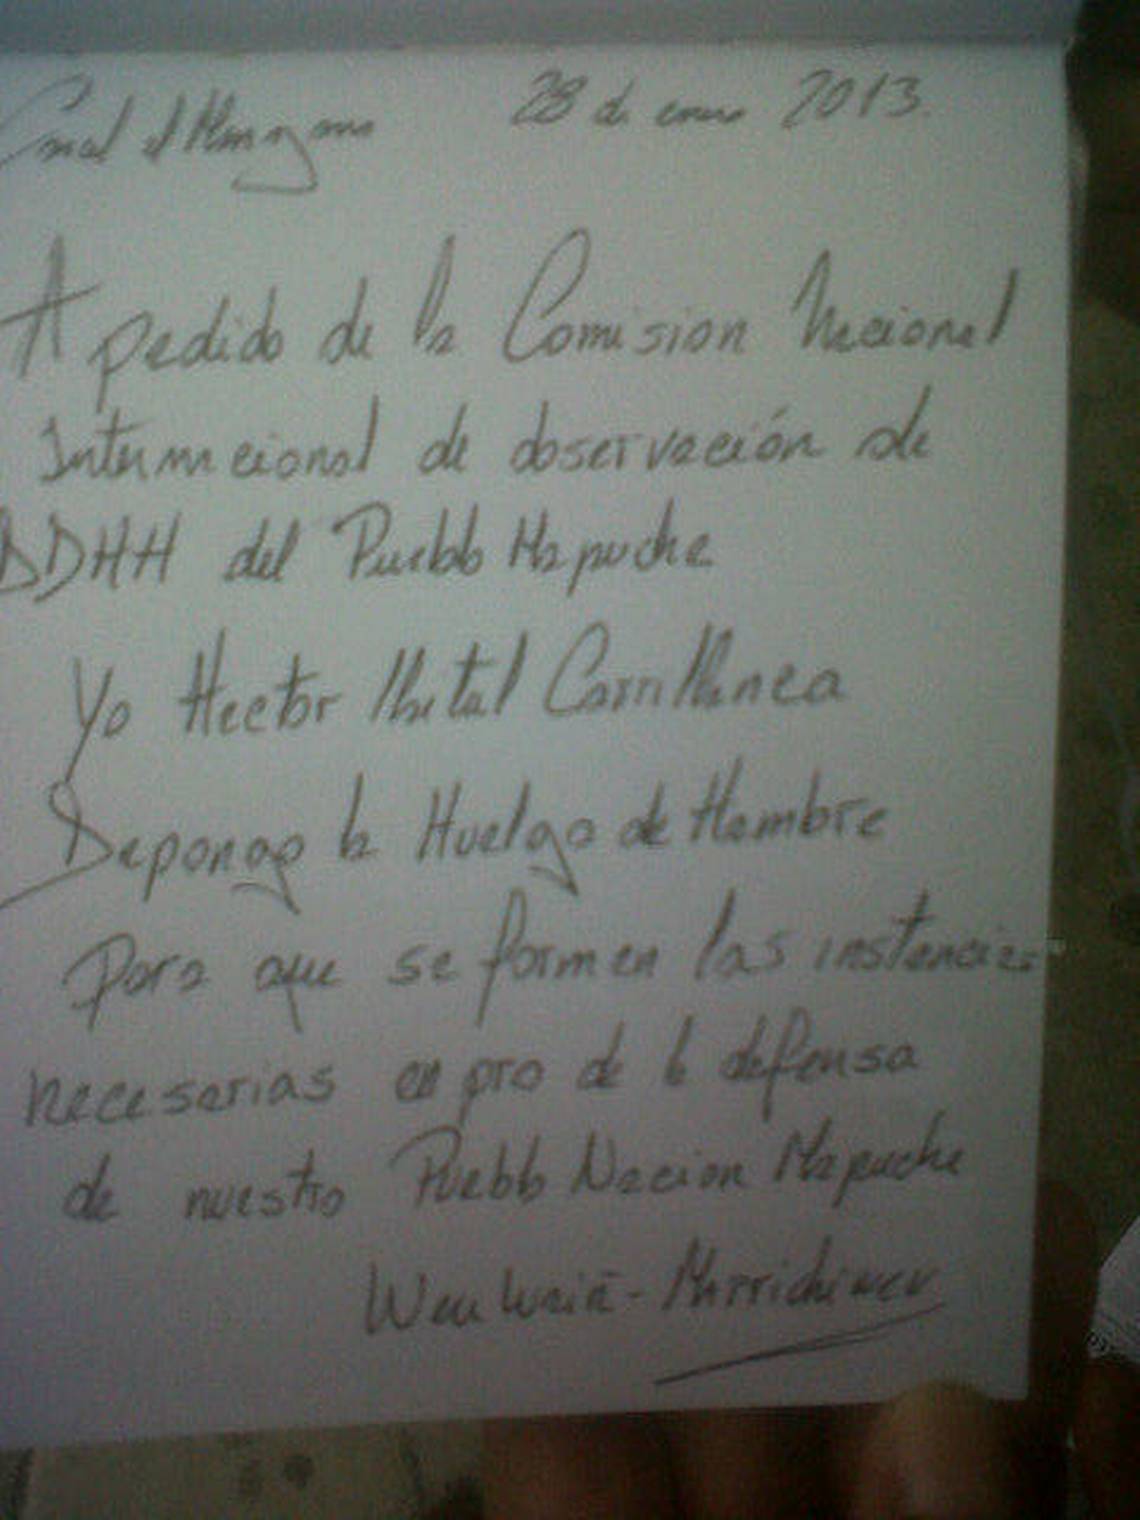 Carcel el Manzano 28 de enero 2013.
A pedido de la Comision Nacional
Internacional de observación de
DDHH del Pueblo Mapuche
Yo Hector Llaitul Carrillanca
Depongo la Huelga de Hambre
para que se formen las instancias
necesarias en pro de la defensa
de nuestro Pueblo Nacion Mapuche
Weuwaiñ - Marrichiweu